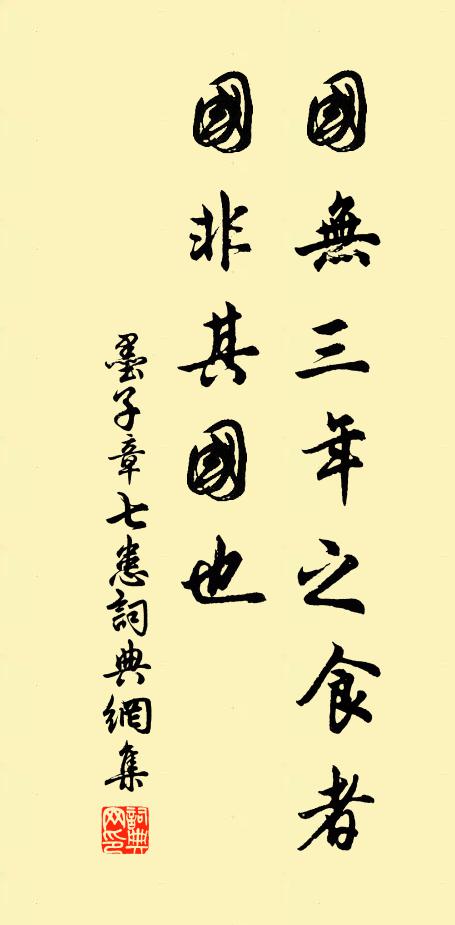 國無三年之食者
國非其國也
墨子章七患詞典網集
詞典
网印